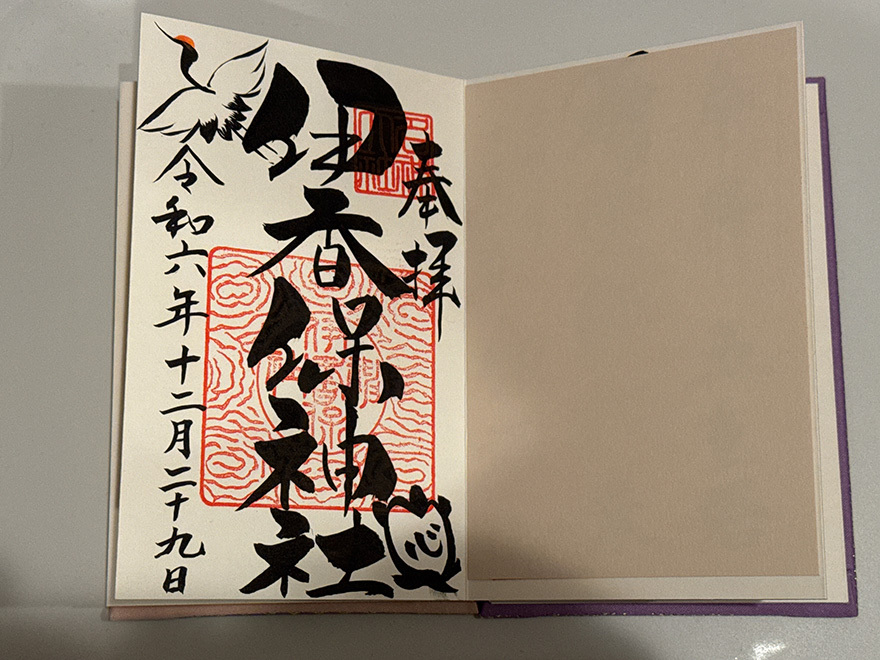 奉拝
伊香保神社
心
令和六年十二月二十九日